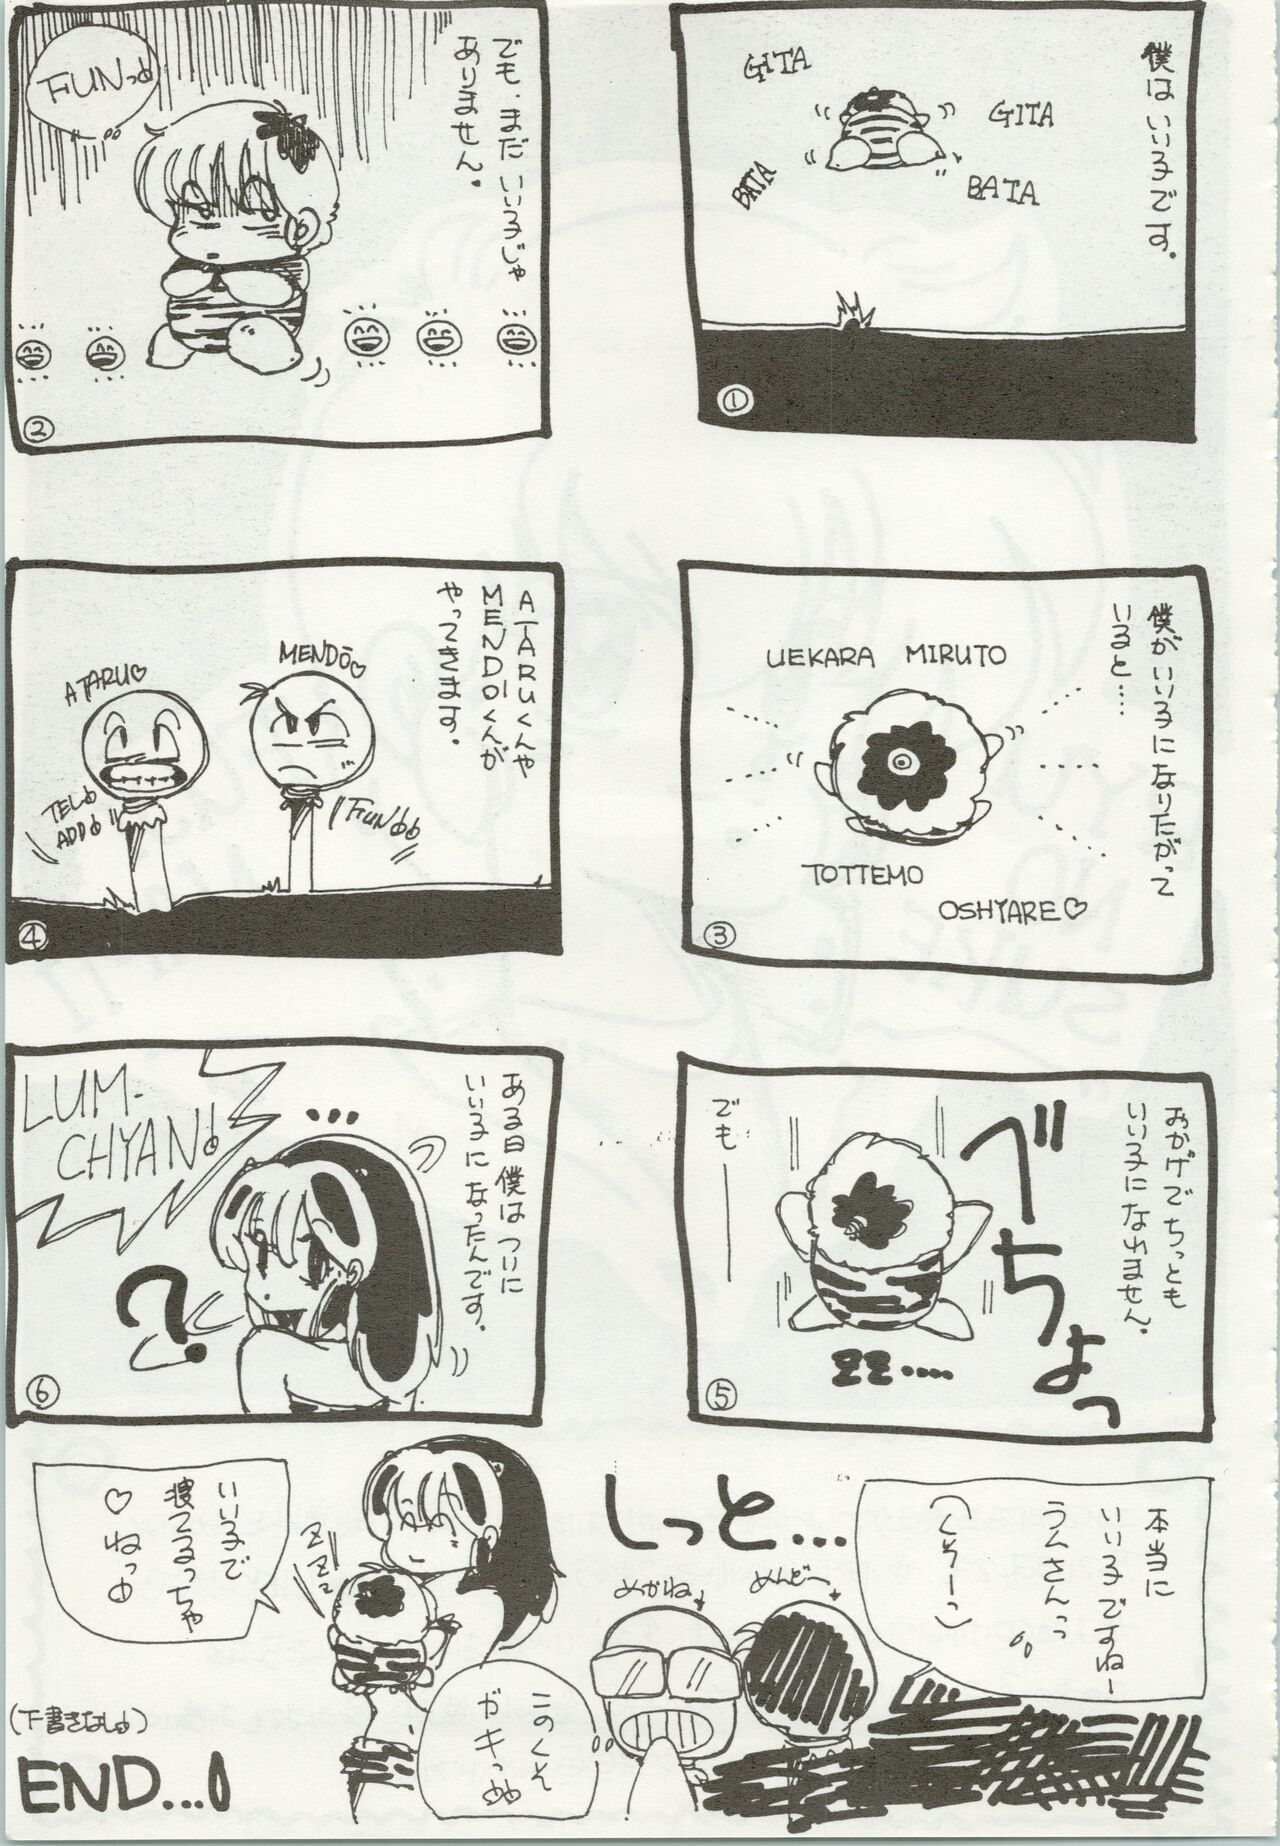 僕はいい子です。
GITA
GITA
BATA
BATA
①
でも、まだ いい子じゃ
ありません。
FUNっ♪
②
僕がいい子になりたがって
いると…
UEKARA MIRUTO
TOTTEMO
OSHYARE♡
③
ATARUくんや
MENDOくんが
やってきます。
MENDŌ♡
ATARU♡
TEL♪
ADD♪
FUN♪♪
④
おかげでちっとも
いい子になれません。
でも——
べちょっ
ZZ....
⑤
ある日 僕はついに
いい子になったんです。
LUM-
CHYAN♪
...
?
⑥
本当に
いい子ですねー
ラムさんっ
しっと...
めんどー
めかね
このくそ
ガキっ♪♪
いい子で
寝てるっちゃ
♡ねっ♪
ZZZ
(下書きなし♪)
END...!